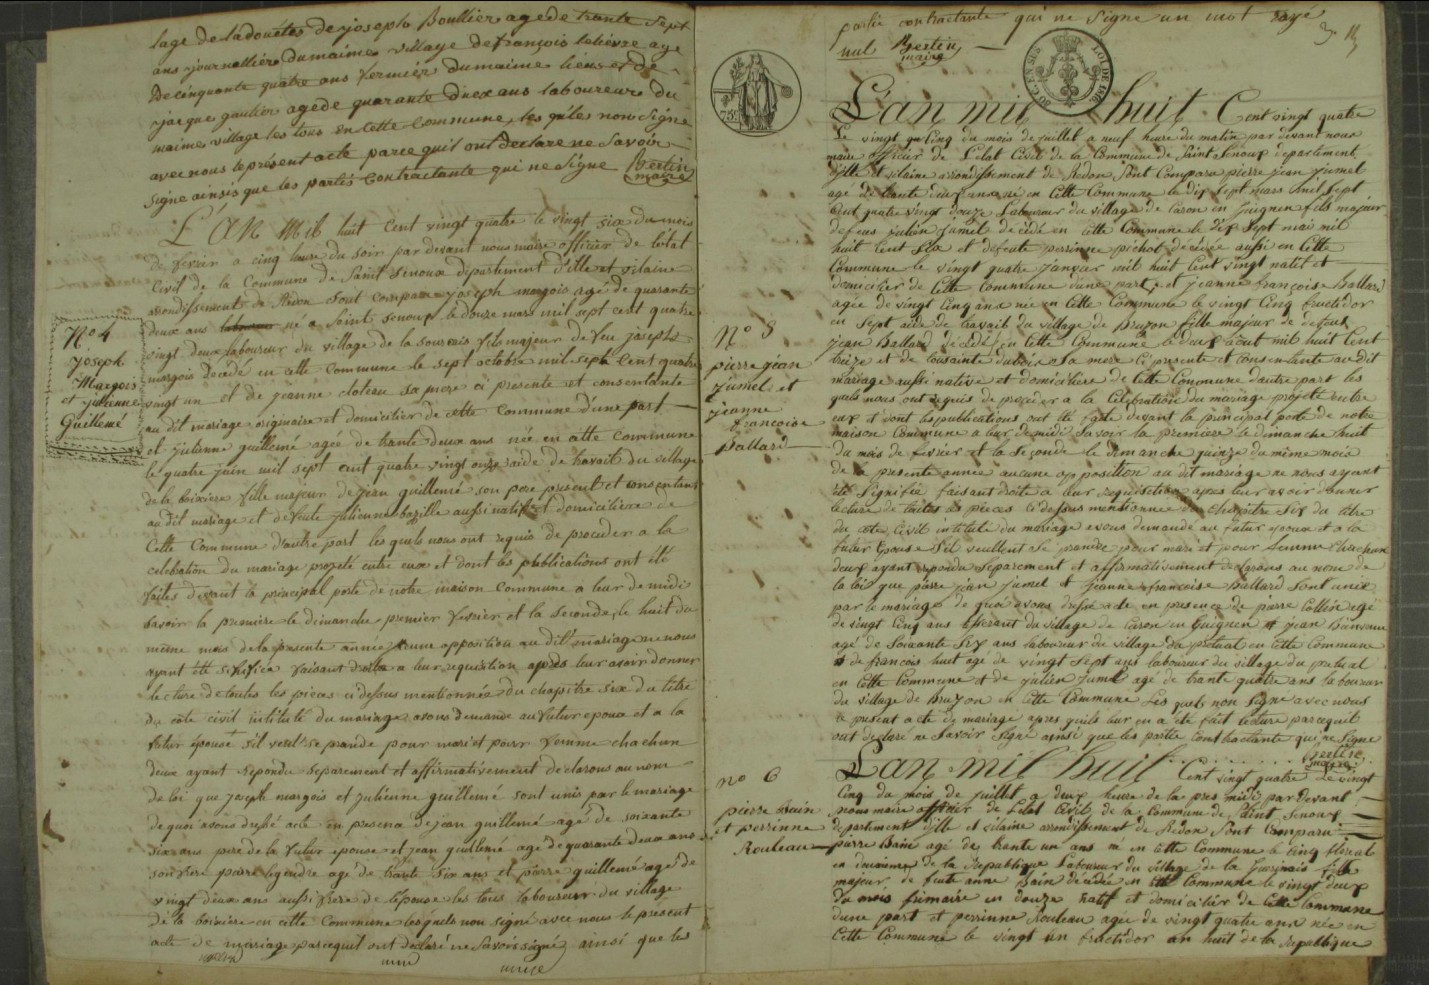 lage de ladouetes de joseph Boullier age de trante sept
ans journallière du maime village de françois lelievre age
De cinquante quatre ans fermier du maime lieu et de
jacque gautier age de quarante deux ans laboureure du
maime village les tous en cette commune les quéles non Signe
avec nous le présent acte parce quil ont Declare ne Savoir
Signe ainsis que les partis contractante qui ne Signe Bertin
maire
L'AN Mil huit cent vingt quatre le vingt six du mois
de fevrier a cinq heure du soir par devant nous maire officier de l'etat
Civil de la Commune de Saint Senoux département d'ille et vilaine
arondissement de Redon Sont comparu joseph margois age de quarante
deux ans né a Saint Senoux le douze mars mil sept cent quatre
vingt deux laboureur du village de la fils majeur de feu joseph
margois décédé en cette commune le sept octobre mil sept cent quatre
vingt un et de jeanne sa mere ci presente et consentante
au dit mariage originaire et domicilier de cette commune d'une part
et julienne guillemé agée de trante deux ans née en cette commune
le quatre juin mil sept cent quatre vingt onze aide de travait du village
de la boixiere fille majeur de jean guillemé son pere présent et consentant
au dit mariage et defeute julienne aussi native et domicilière de
Cette Commune d'autre part les quels nous ont requis de proceder a la
celebration du mariage projeté entre eux et dont les publications ont été
faites devant la principal porte de notre maison Commune a leur de midi
Savoir la première le dimanche premier fevrier et la Seconde le huit du
même mois de la présente année aucune opposition au dit mariage ne nous
ayant été faisant droit a leur requisition après leur avoir donner
lecture de toutes les pièces ci dessus mentionnée du chapitre six du titre
du code civil intitulé du mariage avons demande au futur epoux et a la
futur épouse s'il veul se prandre pour mari et pour femme chachun
deux ayant repondu separement et affirmativement declarons au nom
de loi que joseph margois et julienne guillemé sont unis par le mariage
de quoi avons dressé acte en presena de jean guillemé agé de soixante
six ans pere de la futur epouse et jean guillemé age de quarante deux ans
son frere pierre legendre age de trante Six ans et pierre guillemé age de
vingt deux ans aussi frere de l'épouse les tous laboureur du village
de la boixiere en cette Commune les quels non signé avec nous le présent
acte de mariage parce quil ont declaré ne Savoir signé ainsi que les
N° 4
Joseph
Margois
et julienne
Guillemé
partie contractante qui ne Signe un mot rayé
nul Bertin
maire
30 C. EN SUS
LOI DE 1816
75c
L'an mil huit Cent vingt quatre
Le vingt cinq du mois de juillet a neuf heure du matin par devant nous
maire officier de L'état Civil de la Commune de Saint Senoux departement
d'ille et vilaine arrondissement de Redon Sont Comparu pierre jean jumel
agé de trante deux ans né en Cette Commune le dix Sept mars mil Sept
Cent quatre vingt douze Laboureur du village de Caron en Guignen fils majeur
defeus julien jumel décédé en Cette Commune le dix Sept mai mil
huit Cent Six et defeute perrinne pichot décédée aussi en Cette
Commune le vingt quatre janvier mil huit Cent vingt natif et
domicilier de Cette Commune d'une part et jeanne françoise Ballard
agée de vingt Cinq ans née en Cette Commune le vingt Cinq fructidor
en Sept aide de travait du village de Bruzon fille majeur de defeus
jean Ballard décédé en Cette Commune le deux aout mil huit Cent
treize et de sa mere Ci presente et consentante au dit
mariage aussi native et domicilière de Cette Commune dautre part les
quels nous ont requis de proceder a la Celebration du mariage projeté entre
eux et dont les publications ont été faite devant la principal porte de notre
maison Commune a leur de midi Savoir la premiere le dimanche huit
du mois de fevrier et la Seconde le dimanche quinze du même mois
de la presente année aucune opposition au dit mariage ne nous ayant
été Signifié faisant droite a leur requisition apres leur avoir donner
lecture de toutes les pièces ci dessus mentionnée du Chapitre Six du titre
du code Civil intitulé du mariage avons demandé au futur epoux et a la
futur épouse S'il veullent Se prandre pour mari et pour femme Chachun
deux ayant repondu Separement et affirmativement declarons au nom de
la loi que pierre jean jumel et jeanne françoise Ballard Sont unis
par le mariage de quoi avons dressé acte en presence de pierre Collin agé
de vingt Cinq ans du village de Caron en Guignen et jean Bienvenu
agé de Soixante Six ans laboureur du village du pretual en Cette Commune
et de francois huet agé de vingt Sept ans laboureur du village du pretual
en Cette Commune et de julien jumel agé de trante quatre ans laboureur
du village de Bruzon en Cette Commune Les quels non Signe avec nous
le présent acte de mariage apres quils leur en a été fait lecture parcequil
ont declaré ne Savoir Signé ainsi que les partie contractante qui ne Signe
Bertin
maire
N° 5
pierre jean
jumel et
jeanne
francoise
Ballard
L'an mil huit Cent vingt quatre le vingt
Cinq du mois de juillet a deux heure de la pres midi par devant
nous maire officier de L'etat Civil de la Commune de Saint Senoux
departement d'ille et vilaine arrondissement de Redon Sont Comparu
pierre Bain agé de trente un ans né en Cette Commune le Cinq floréal
en de la Republique Laboureur du village de la fils
majeur de feute anne décédée en Cette Commune le vingt deux
du mois frimaire en douze natif et domicilier de Cette Commune
dune part et perrinne Rouleau agée de vingt quatre ans née en
Cette Commune le vingt un fructidor an huit de la Republique
n° 6
pierre Bain
et perrinne
Rouleau